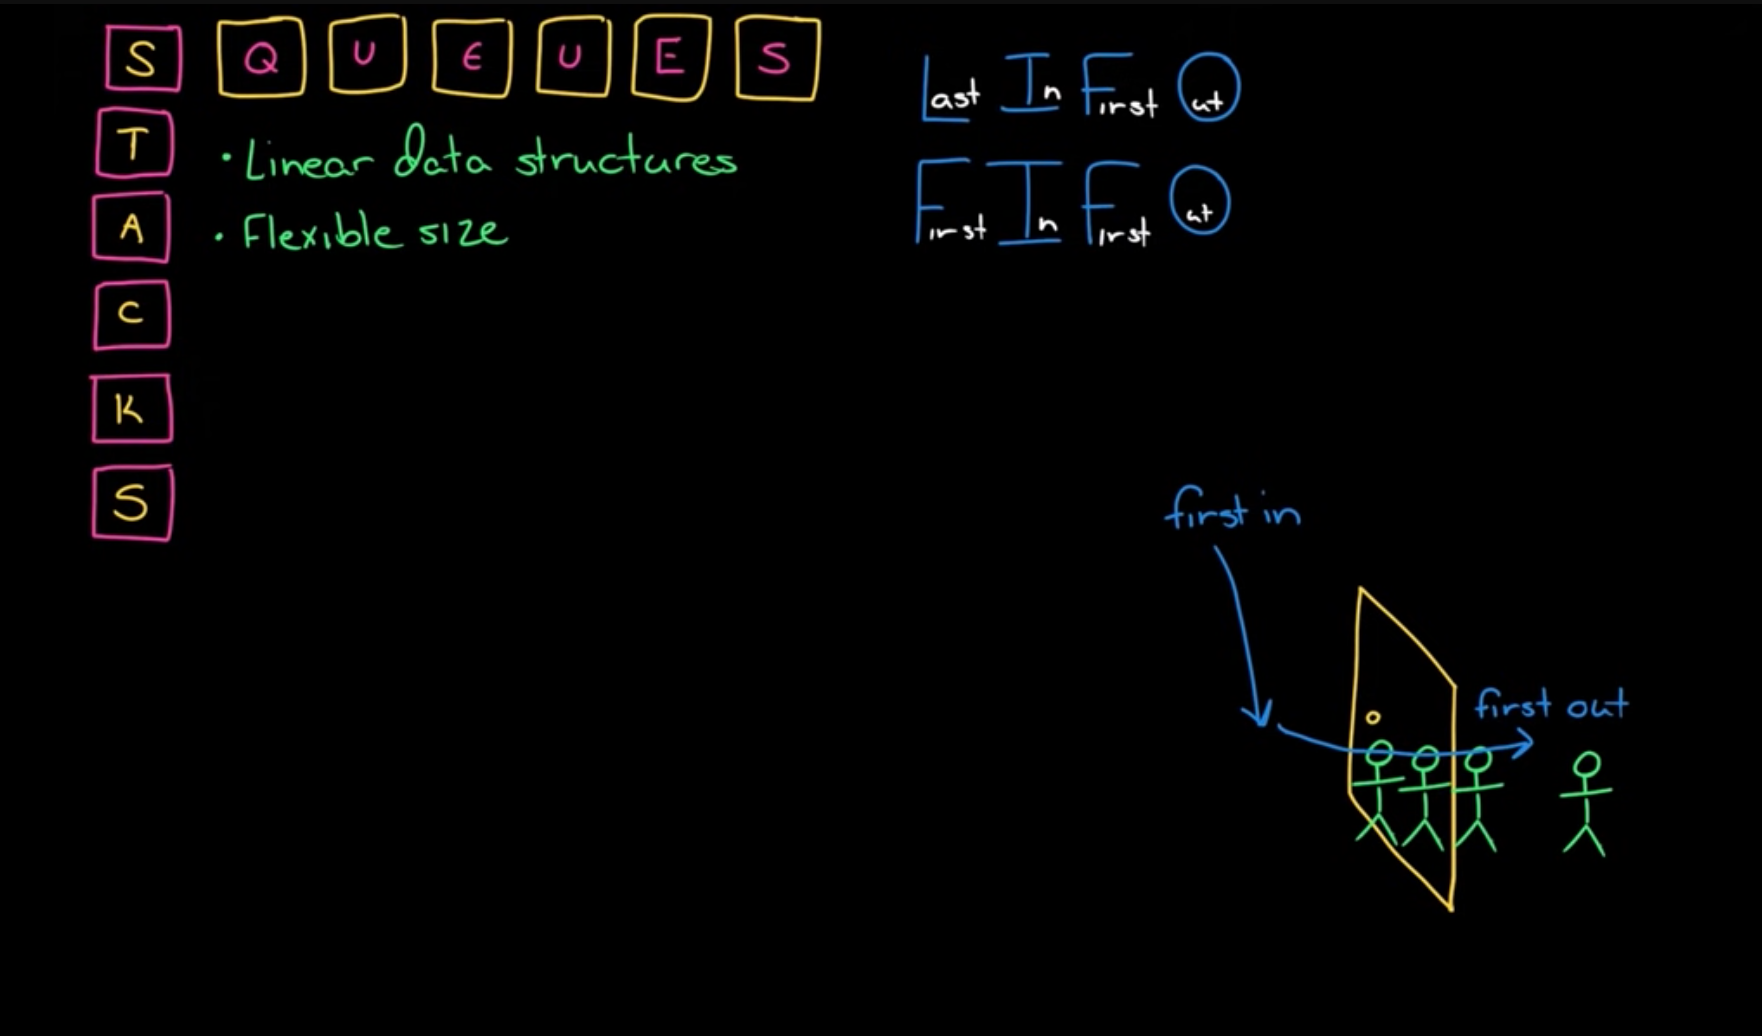 S QUEUES
T
A
C
K
S
• Linear data structures
• Flexible size
Last In First Out
First In First Out
first in
first out